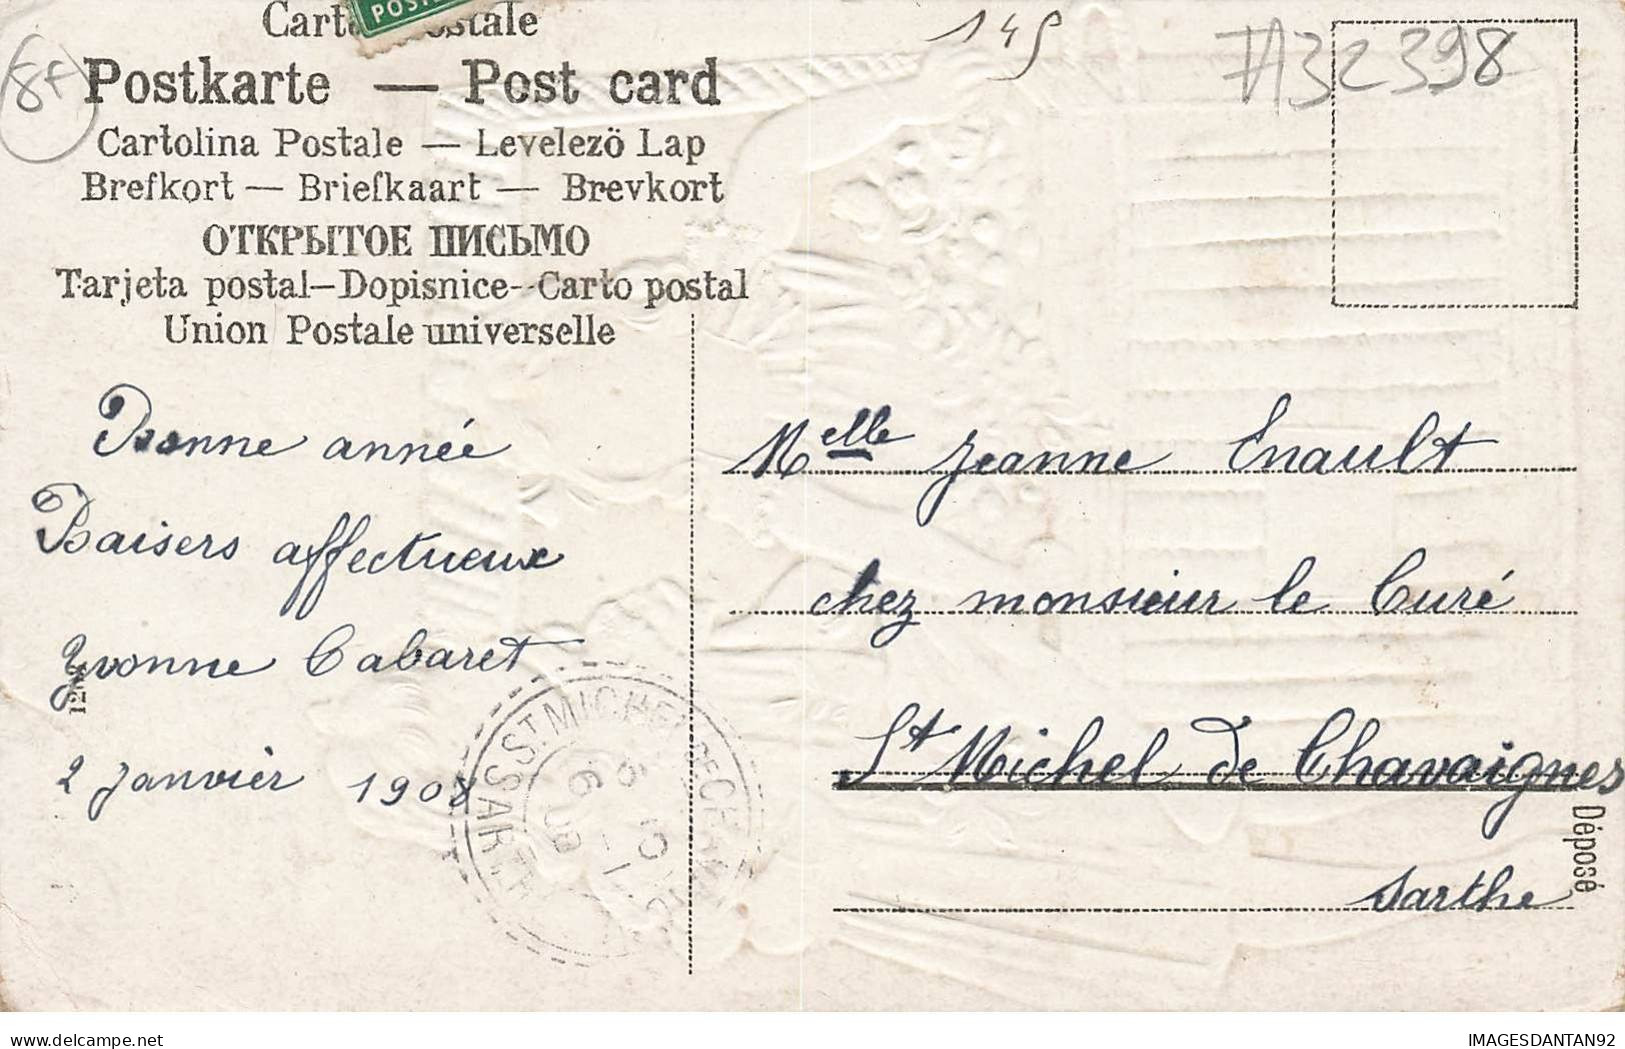 POST
149
#A32398
8F
Postkarte — Post card
Cartolina Postale — Levelezö Lap
Brefkort — Briefkaart — Brevkort
ОТКРЫТОЕ ПИСЬМО
Tarjeta postal—Dopisnice--Carto postal
Union Postale universelle
Bonne année
Baisers affectueux
Yvonne Cabaret
2 Janvier 1908
Melle Jeanne Enault
chez monsieur le Curé
St Michel de Chavaignes
Sarthe
Déposé
ST MICHEL DE
SARTHE
IMAGESDANTAN92